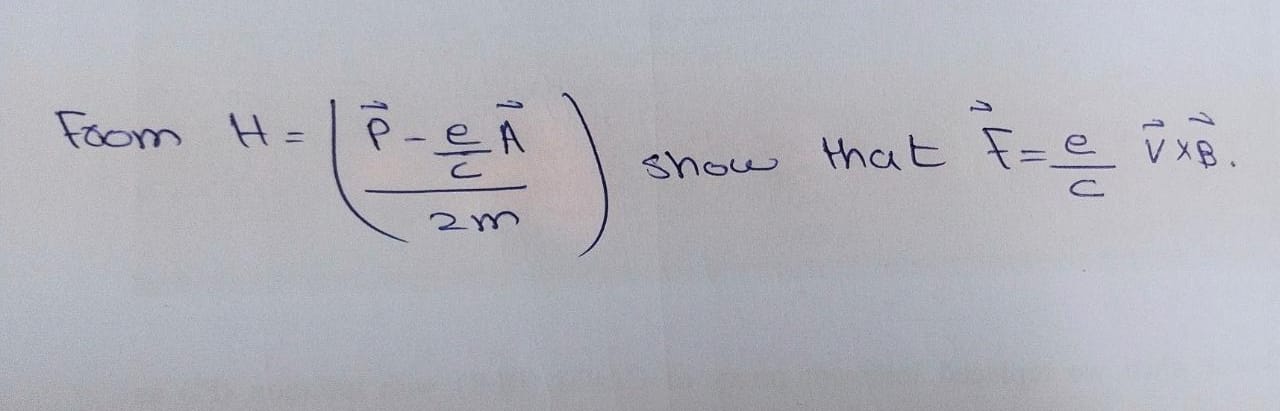 From H = ( (P⃗ - e/c A⃗) / 2m ) show that F⃗ = e/c V⃗ × B⃗.